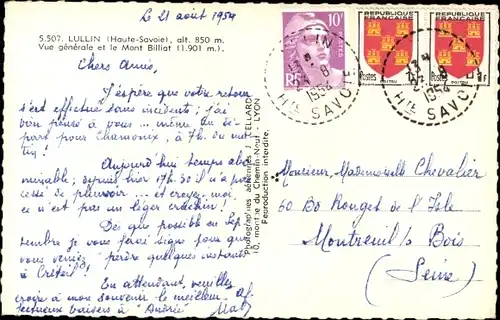 Le 21 août 1954
5.507. LULLIN (Haute-Savoie), alt. 850 m.
Vue générale et le Mont Billiat (1.901 m.).
Chers Amis,
J'espère que votre retour
s'est effectué sans incidents; j'ai
bien pensé à vous ... même au dé-
part pour Chamonix, à 7h. du ma-
tin!
Aujourd'hui temps abo-
minable; depuis hier 17h.30 il n'a pas
cessé de pleuvoir ... et croyez-moi,
ce n'est pas un léger crachin!
Dès que possible en Sep-
tembre je vous ferai signe pour que
vous veniez perdre quelques instants
à Créteil!
En attendant, veuillez
croire à mon souvenir le meilleur. Af-
fectueux baisers à Andrée
Photographies aériennes J. CELLARD
10, montée du Chemin-Neuf - LYON
Reproduction interdite.
10F
RF
LULLIN
21-8
1954
HTE SAVOIE
REPUBLIQUE FRANCAISE
Postes
POITOU
REPUBLIQUE FRANCAISE
Postes
POITOU
1F
21-8
1954
HTE SAVOIE
Monsieur, Mademoiselle Chevalier
60 Bd Rouget de l'Isle
Montreuil s/s Bois
(Seine)